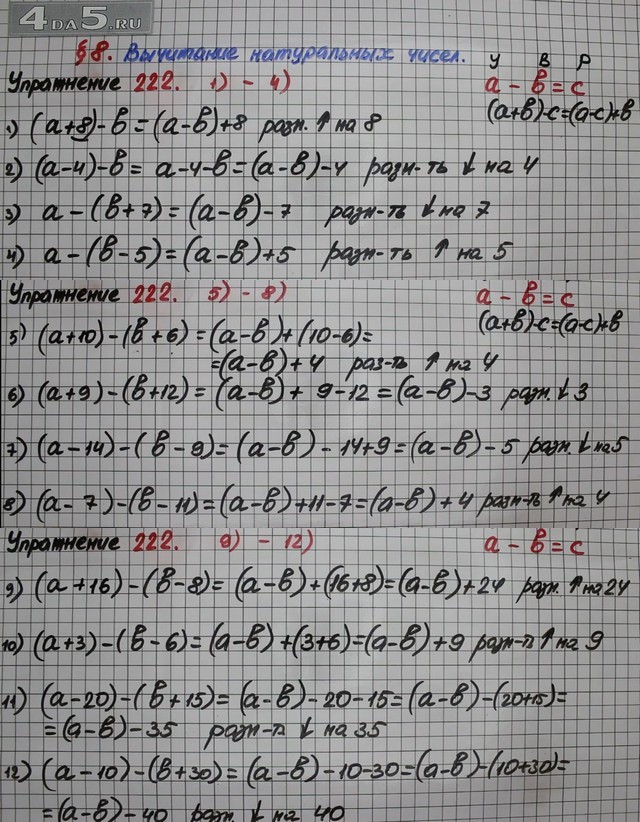 4DA5.RU
§8. Вычитание натуральных чисел. у в р
Упражнение 222. 1) - 4) а - в = с
(а+в)-с=(а-с)+в
1) (а+8)-в=(а-в)+8 разн. ↑ на 8
2) (а-4)-в= а-4-в=(а-в)-4 разн-ть ↓ на 4
3) а-(в+7)=(а-в)-7 разн-ть ↓ на 7
4) а-(в-5)=(а-в)+5 разн-ть ↑ на 5
Упражнение 222. 5) - 8) а - в = с
(а+в)-с=(а-с)+в
5) (а+10)-(в+6)=(а-в)+(10-6)=
=(а-в)+4 раз-ть ↑ на 4
6) (а+9)-(в+12)=(а-в)+ 9-12=(а-в)-3 разн. ↓ 3
7) (а-14)-(в-9)=(а-в)-14+9=(а-в)-5 разн. ↓ на 5
8) (а-7)-(в-11)=(а-в)+11-7=(а-в)+4 разн-ть ↑ на 4
Упражнение 222. 9) - 12) а - в = с
9) (а+16)-(в-8)=(а-в)+(16+8)=(а-в)+24 разн. ↑ на 24
10) (а+3)-(в-6)=(а-в)+(3+6)=(а-в)+9 разн-ь ↑ на 9
11) (а-20)-(в+15)=(а-в)-20-15=(а-в)-(20+15)=
=(а-в)-35 разн-ь ↓ на 35
12) (а-10)-(в+30)=(а-в)-10-30=(а-в)-(10+30)=
=(а-в)-40 разн. ↓ на 40